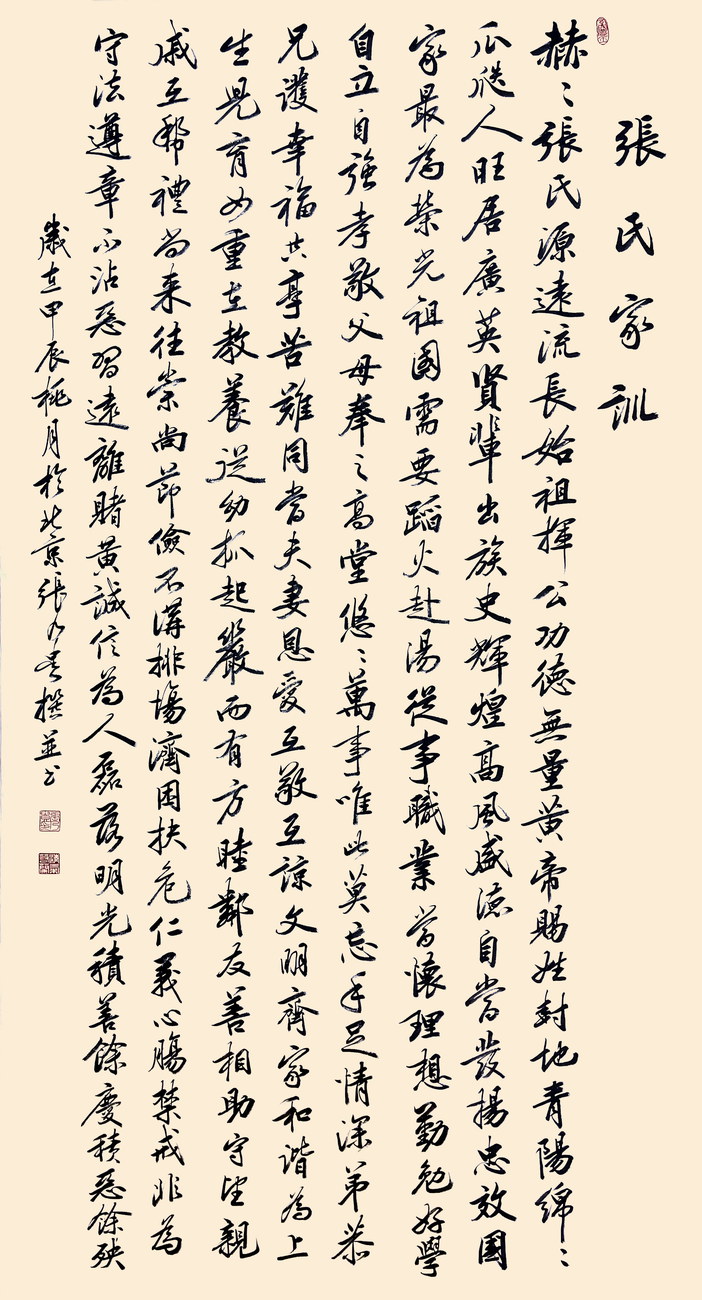 張氏家訓
赫〻張氏源遠流長始祖揮公功德無量黃帝賜姓封地青陽綿〻
瓜瓞人旺居廣英賢輩出族史輝煌高風盛德自當發揚忠效國
家最為榮光祖國需要蹈火赴湯從事職業當懷理想勤勉好學
自立自強孝敬父母奉之高堂悠〻萬事唯此莫忘手足情深弟恭
兄謙幸福共享苦難同當夫妻恩愛互敬互諒文明齊家和諧為上
生兒育女重在教養從幼抓起嚴而有方睦鄰友善相助守望親
戚互幫禮尚來往崇尚節儉不講排場濟困扶危仁義心腸禁戒非為
守法遵章不沾惡習遠離賭黃誠信為人磊落明光積善餘慶積惡餘殃
歲在甲辰桃月於北京張撰並書